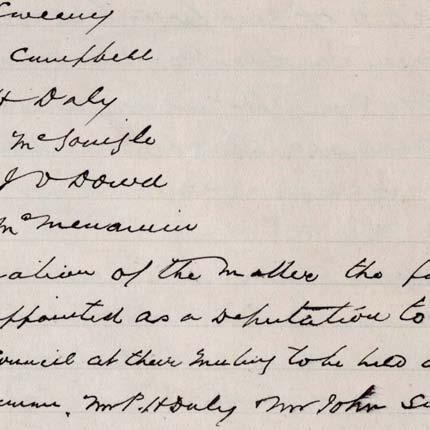 Sweeny
Campbell
H Daly
McGonigle
J O Dowd
McMenamin
ation of the matter the fo
ppointed as a Deputation to
ouncil at their Meeting to be held
Mr P. H Daly Mr John